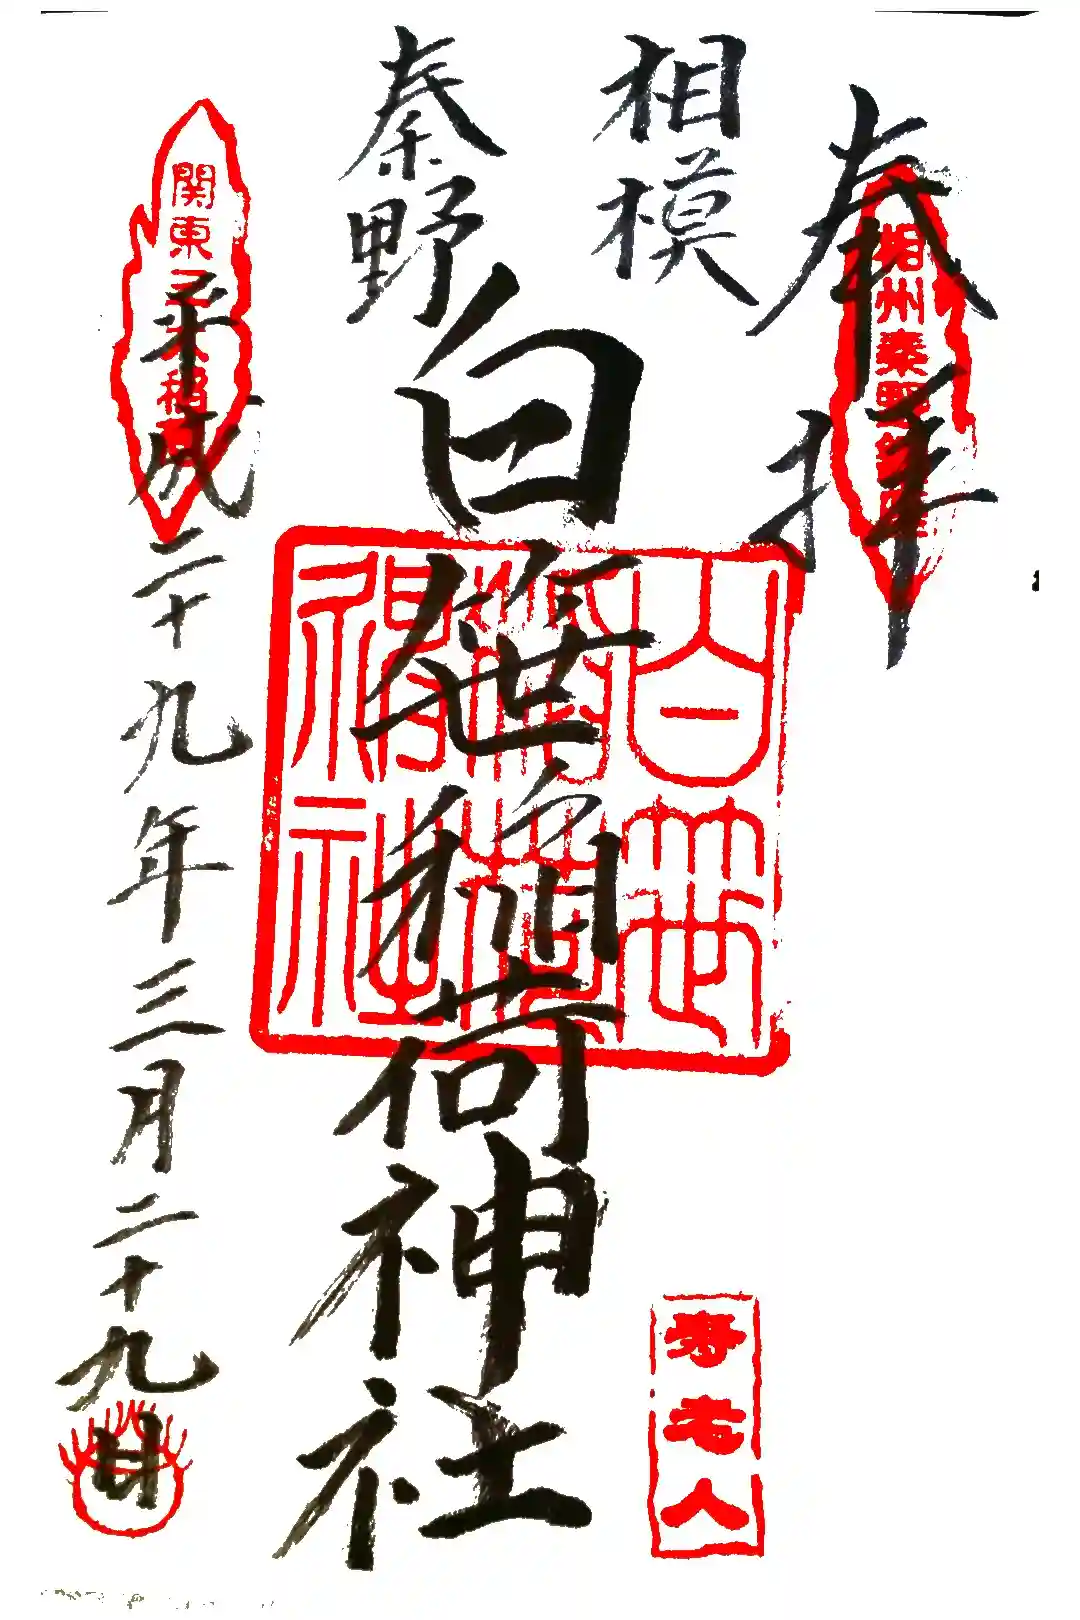 奉拝
相州秦野
相模
秦野
白笹稲荷神社
白笹
稲荷神社
関東三大稲荷
平成二十九年三月二十九日
寿老人